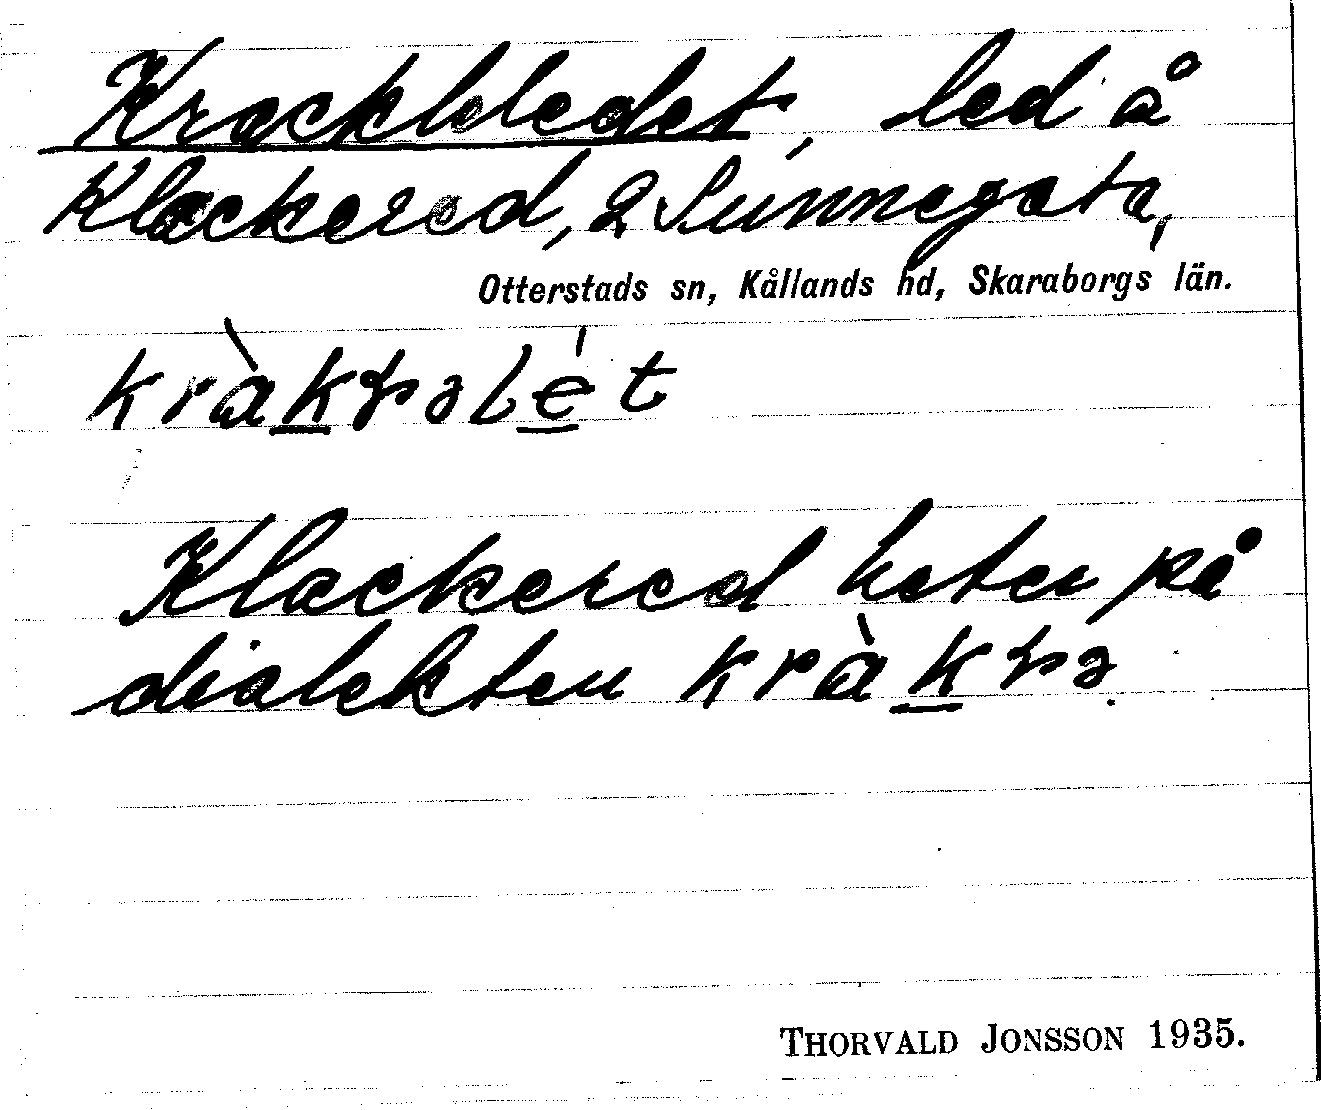 Krackleledet, led å
Klackered, 2 Sunnegata,
Otterstads sn, Kållands hd, Skaraborgs län.
Klackered heter på
dialekten
THORVALD JONSSON 1935.